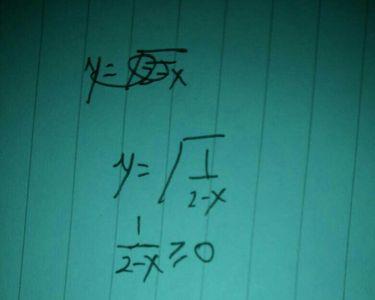 y=
y=√1/2-x
1/2-x ≥0